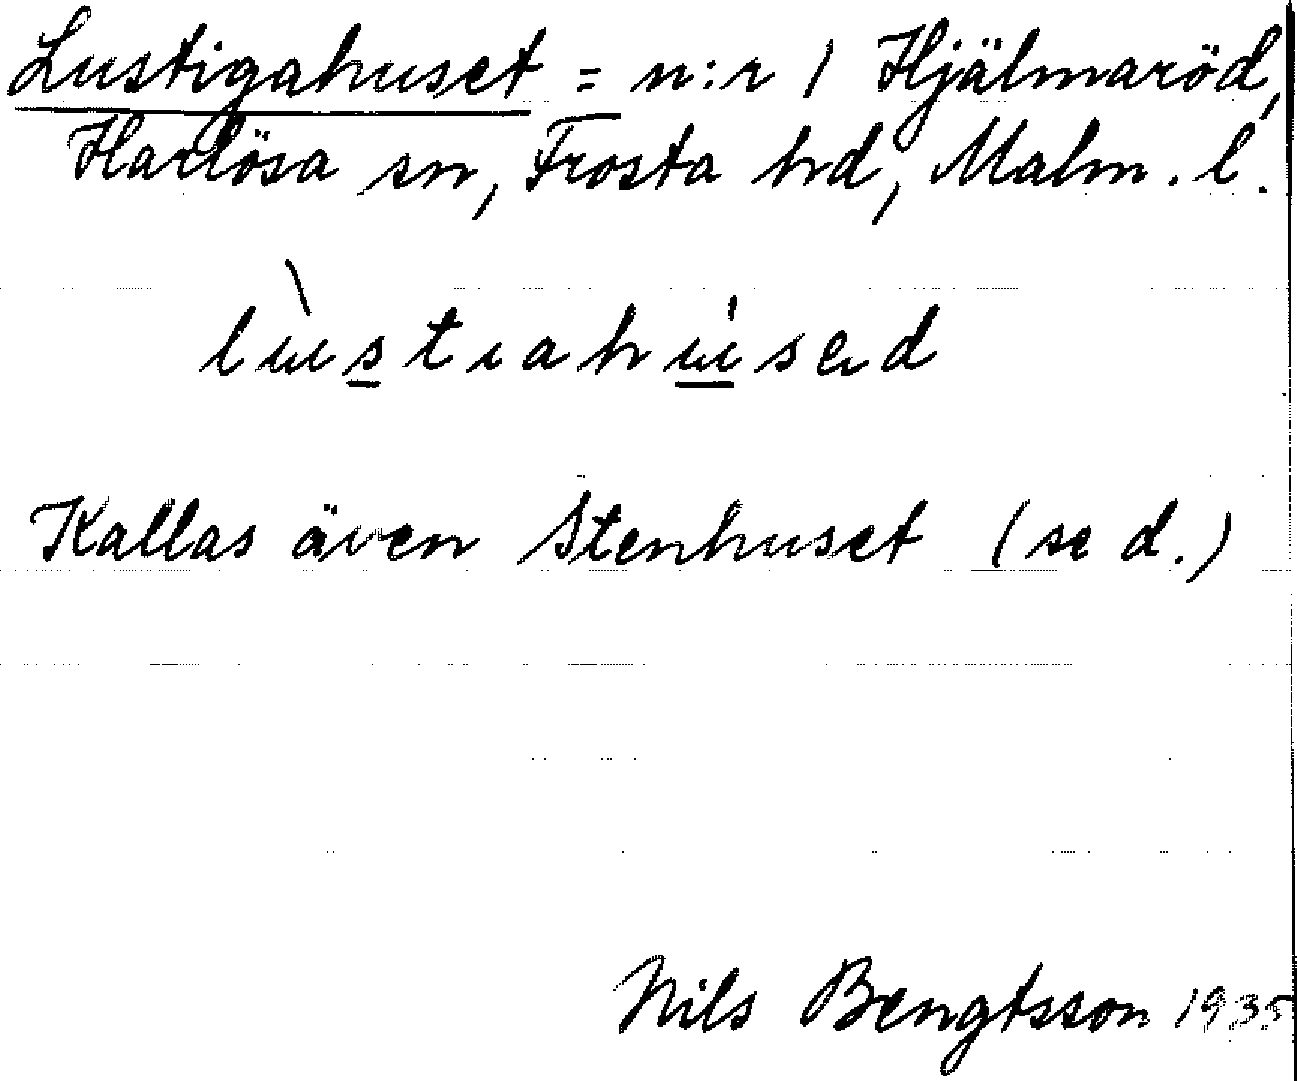 Lustigahuset = n:r 1 Hjälmaröd,
Harlösa sn, Frosta hd, Malm. l.
lùstıahúsəd
Kallas även Stenhuset (se d.)
Nils Bengtsson 1935